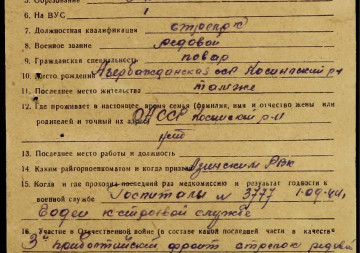 5. Образование
6. На ВУС 1
7. Должностная квалификация стрелок
8. Военное звание рядовой
9. Гражданская специальность повар
10. Место рождения Азербайджанская ССР р-н
11. Последнее место жительства там же
12. Где проживает в настоящее время семья (фамилия, имя и отчество жены или
родителей и точный их адрес) ССР р-н
13. Последнее место работы и должность
14. Каким райгорвоенкоматом и когда призван РВК
15. Когда и где проходил последний раз медкомиссию и результат годности к
военной службе Госпиталь № 3777 1.09.44г.
Годен к строевой службе
16. Участие в Отечественной войне (в составе какой последней части и качестве)
3й прибалтийский фронт стрелок рядовой